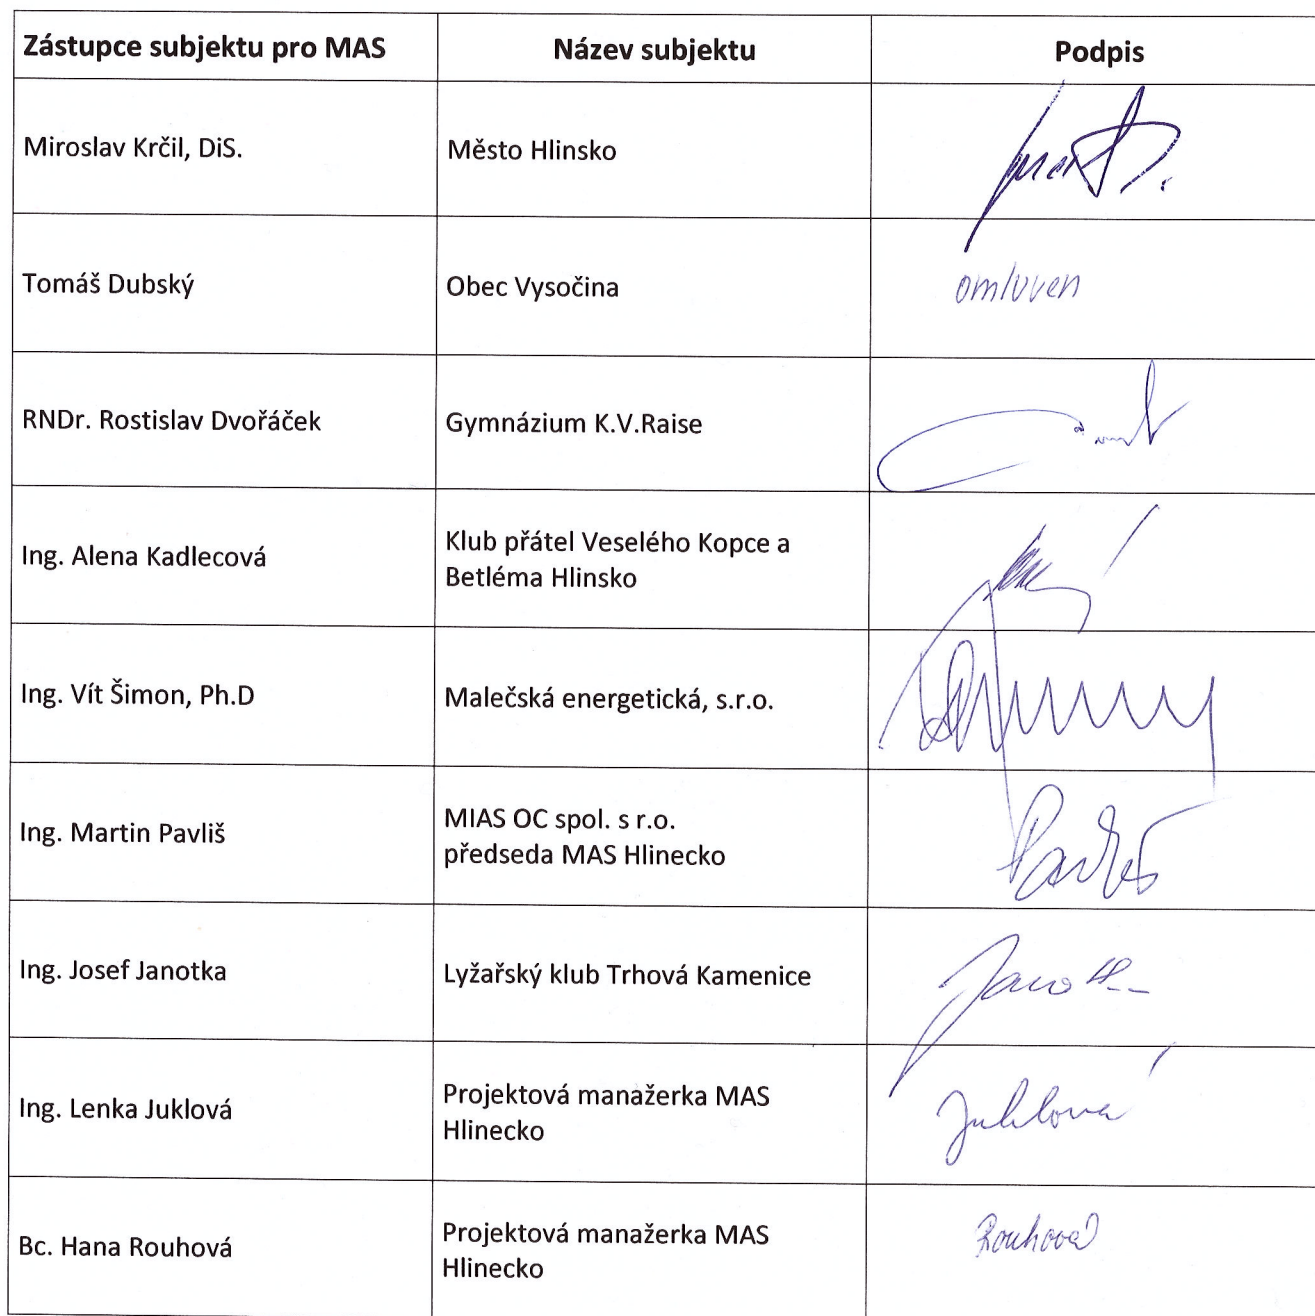 Zástupce subjektu pro MAS
Název subjektu
Podpis
Miroslav Krčil, DiS.
Město Hlinsko
Tomáš Dubský
Obec Vysočina
omluven
RNDr. Rostislav Dvořáček
Gymnázium K.V.Raise
Ing. Alena Kadlecová
Klub přátel Veselého Kopce a
Betléma Hlinsko
Ing. Vít Šimon, Ph.D
Malečská energetická, s.r.o.
Ing. Martin Pavliš
MIAS OC spol. s r.o.
předseda MAS Hlinecko
Ing. Josef Janotka
Lyžařský klub Trhová Kamenice
Ing. Lenka Juklová
Projektová manažerka MAS
Hlinecko
Juklová
Bc. Hana Rouhová
Projektová manažerka MAS
Hlinecko
Rouhová